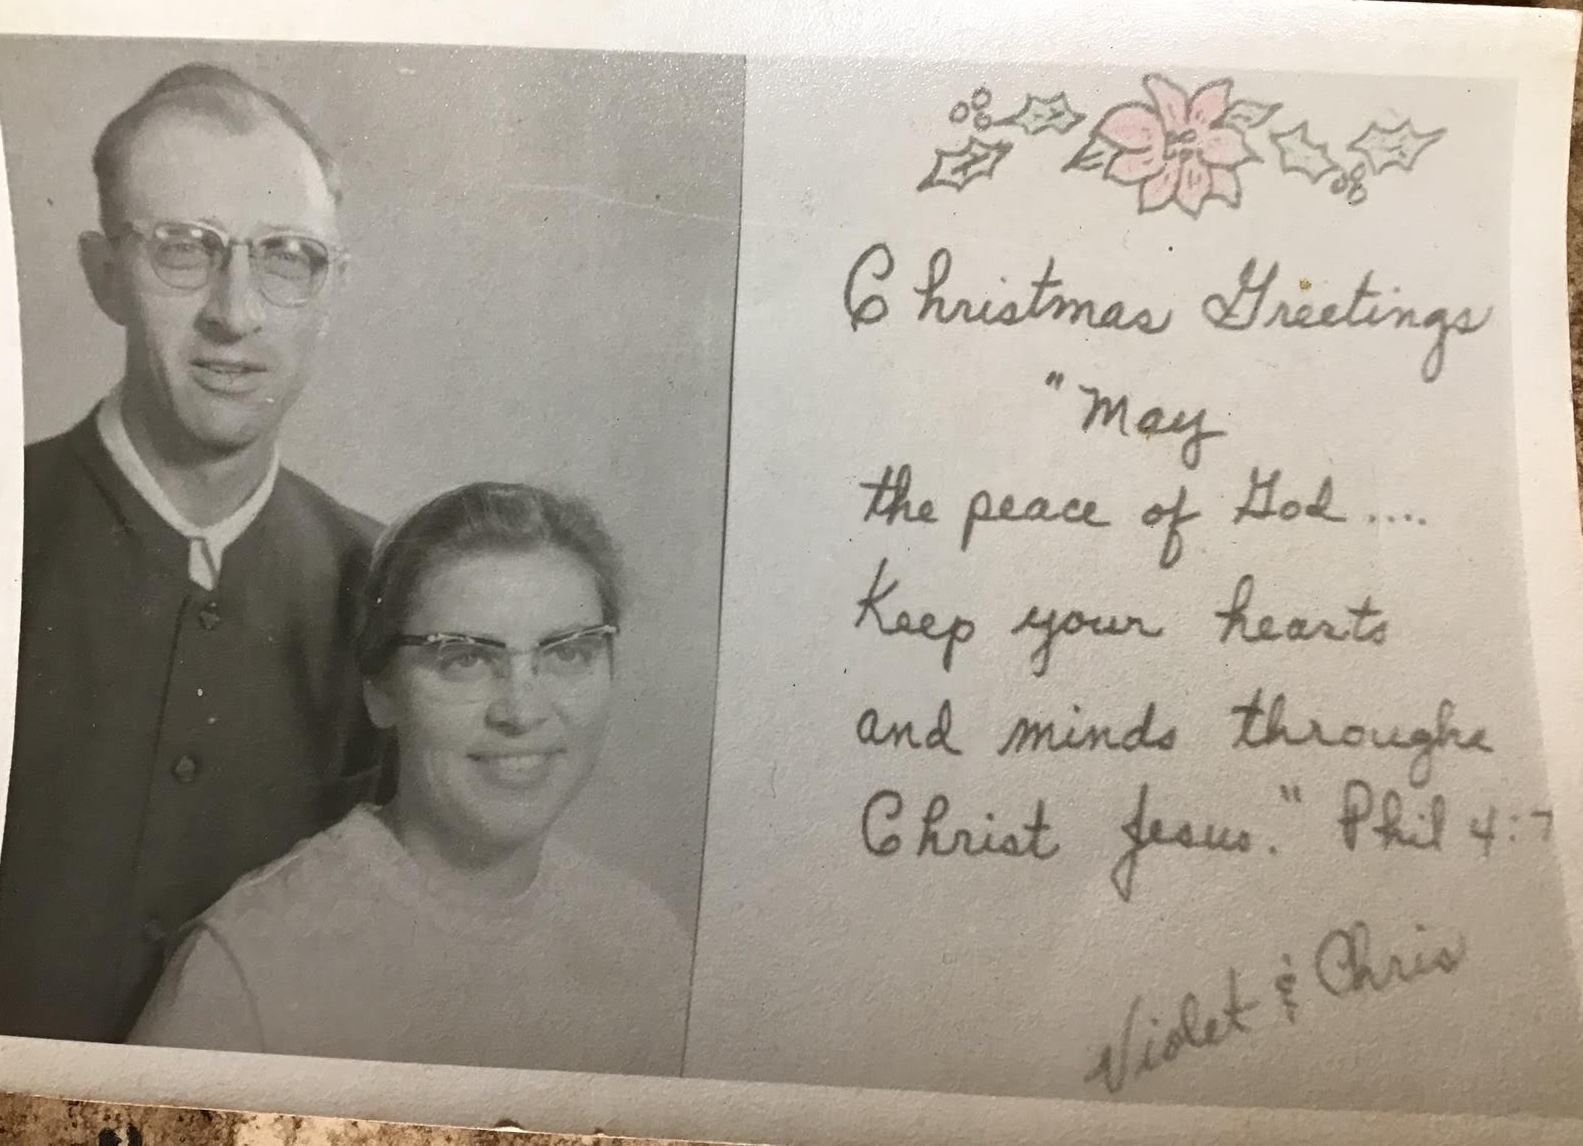 Christmas Greetings
"May
the peace of God....
Keep your hearts
and minds through
Christ Jesus." Phil 4:7
Violet & Chris